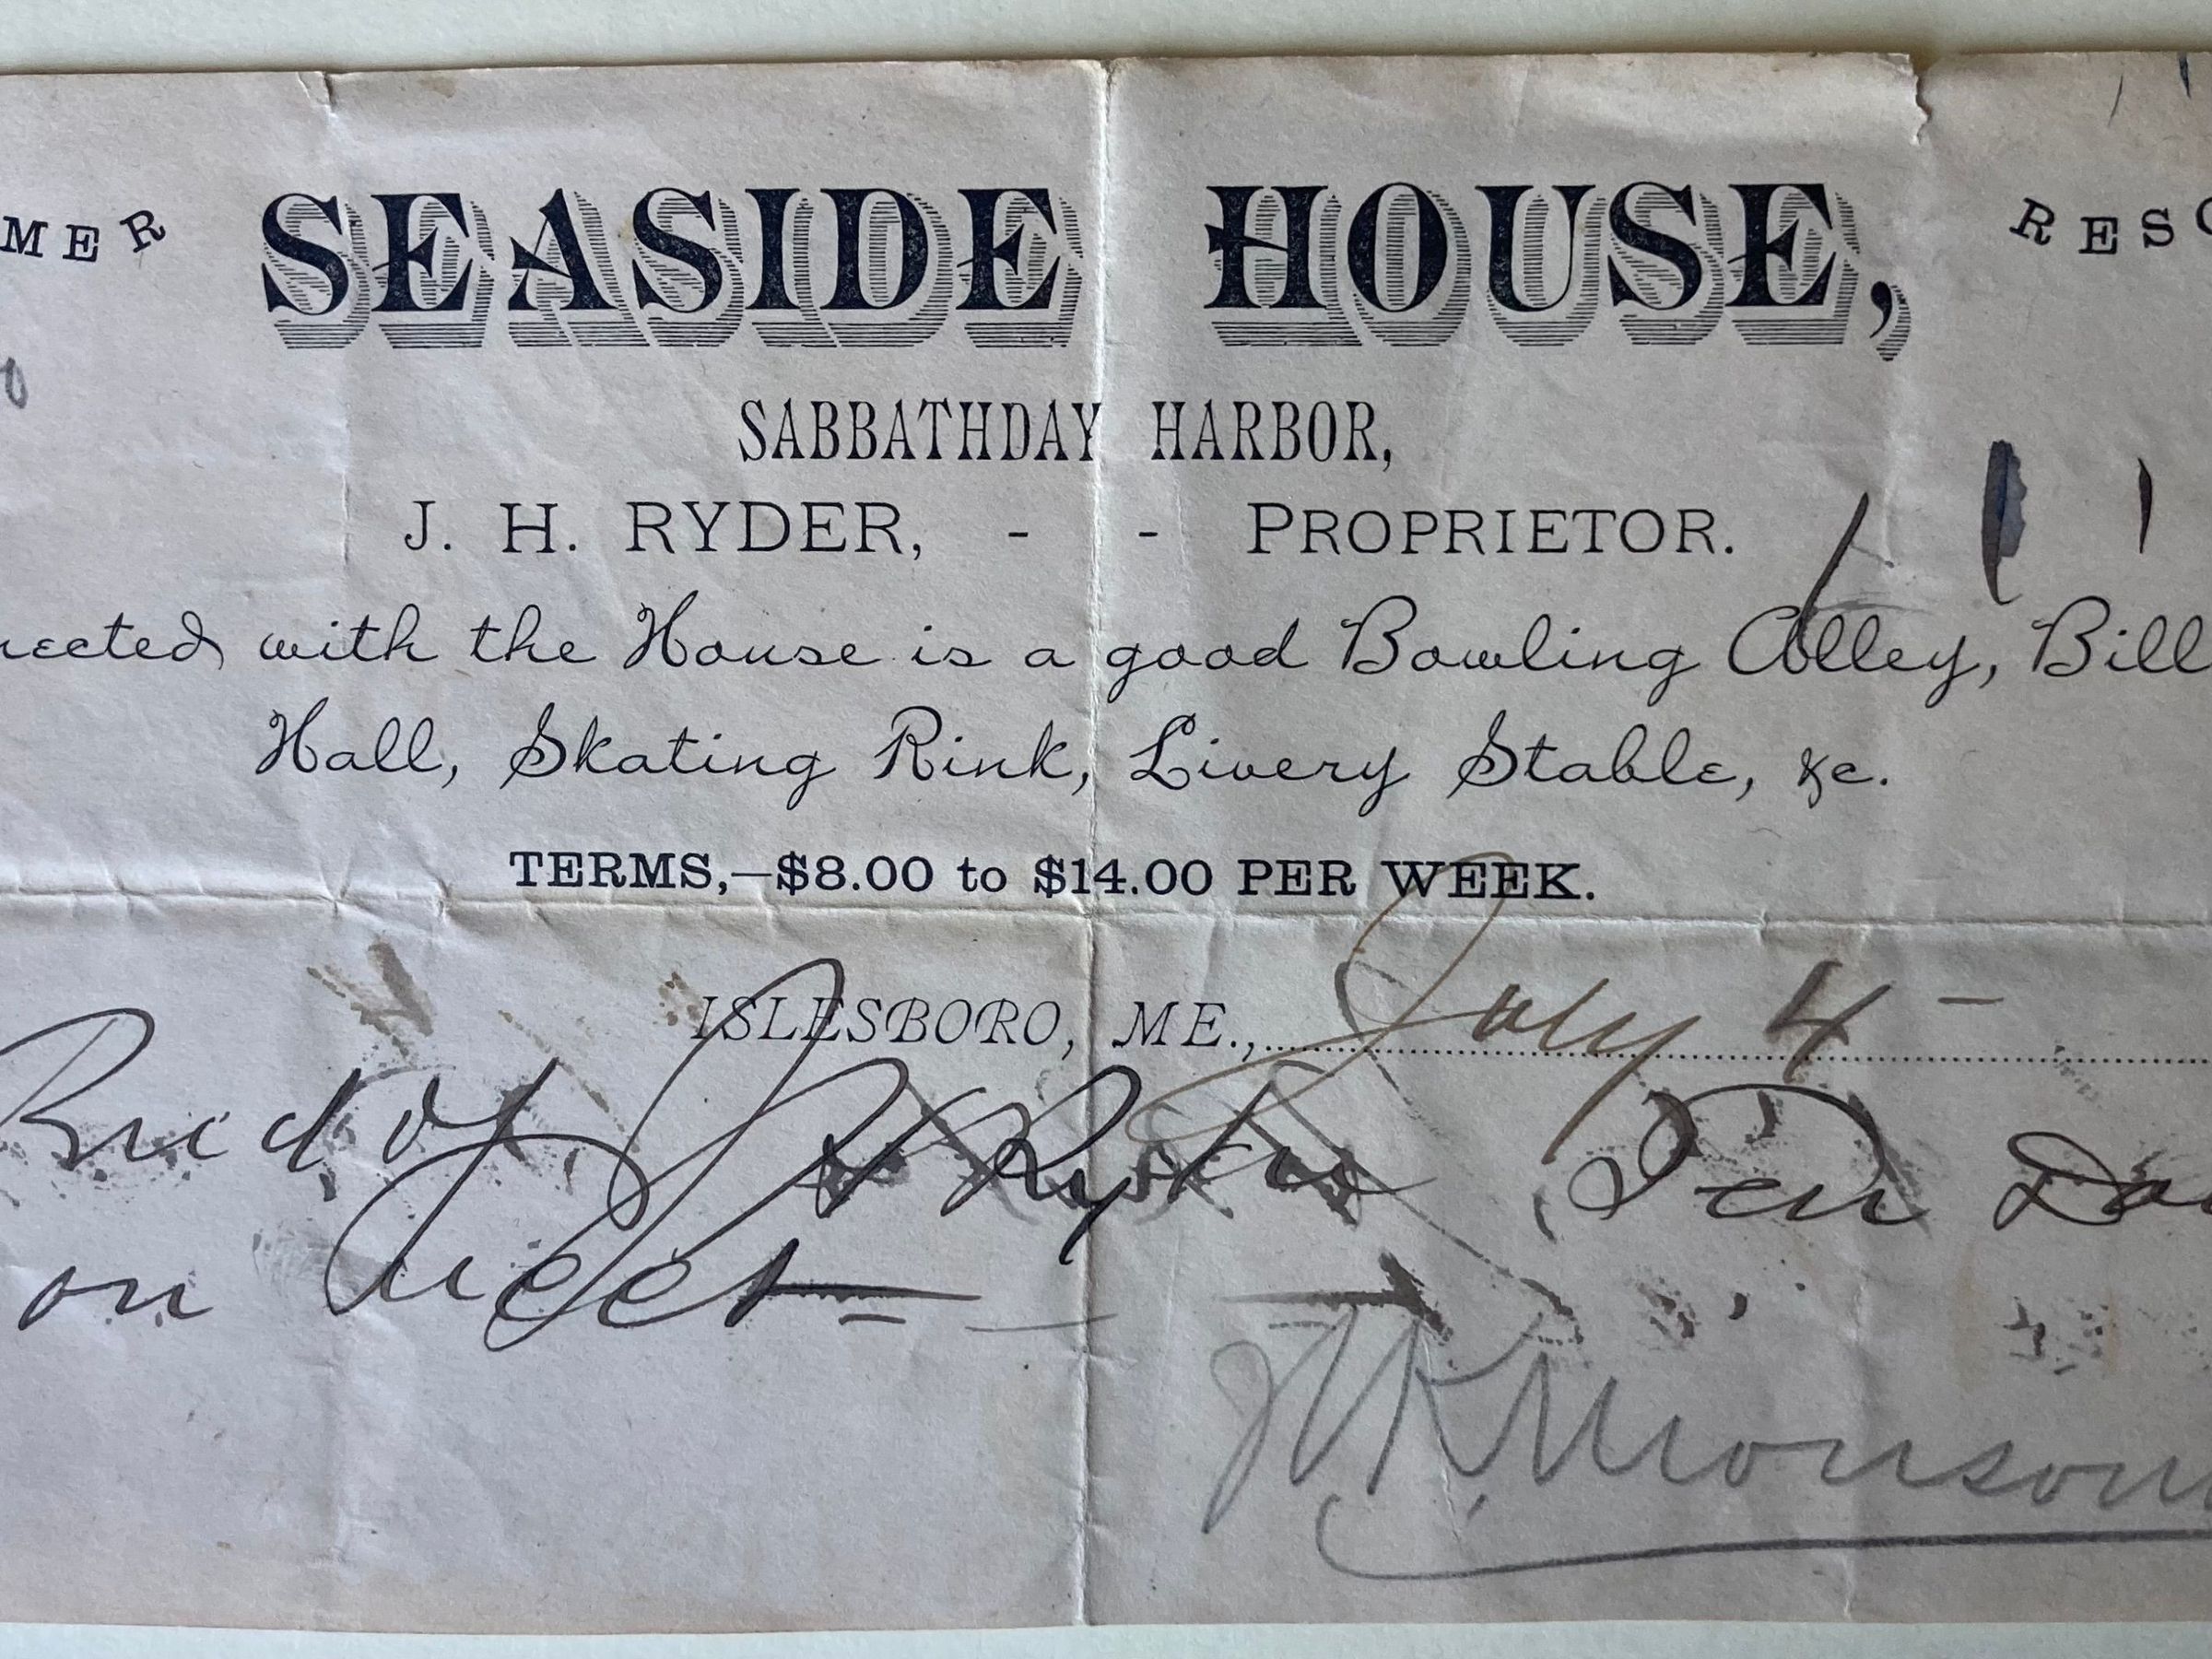 MER SEASIDE HOUSE, RESO
SABBATHDAY HARBOR,
J. H. RYDER, - - PROPRIETOR.
nected with the House is a good Bowling Alley, Bill
Hall, Skating Rink, Livery Stable, &c.
TERMS,—$8.00 to $14.00 PER WEEK.
ISLESBORO, ME., July 4 -
Recd of J H Ryder Ten Dol
on acct
Monson